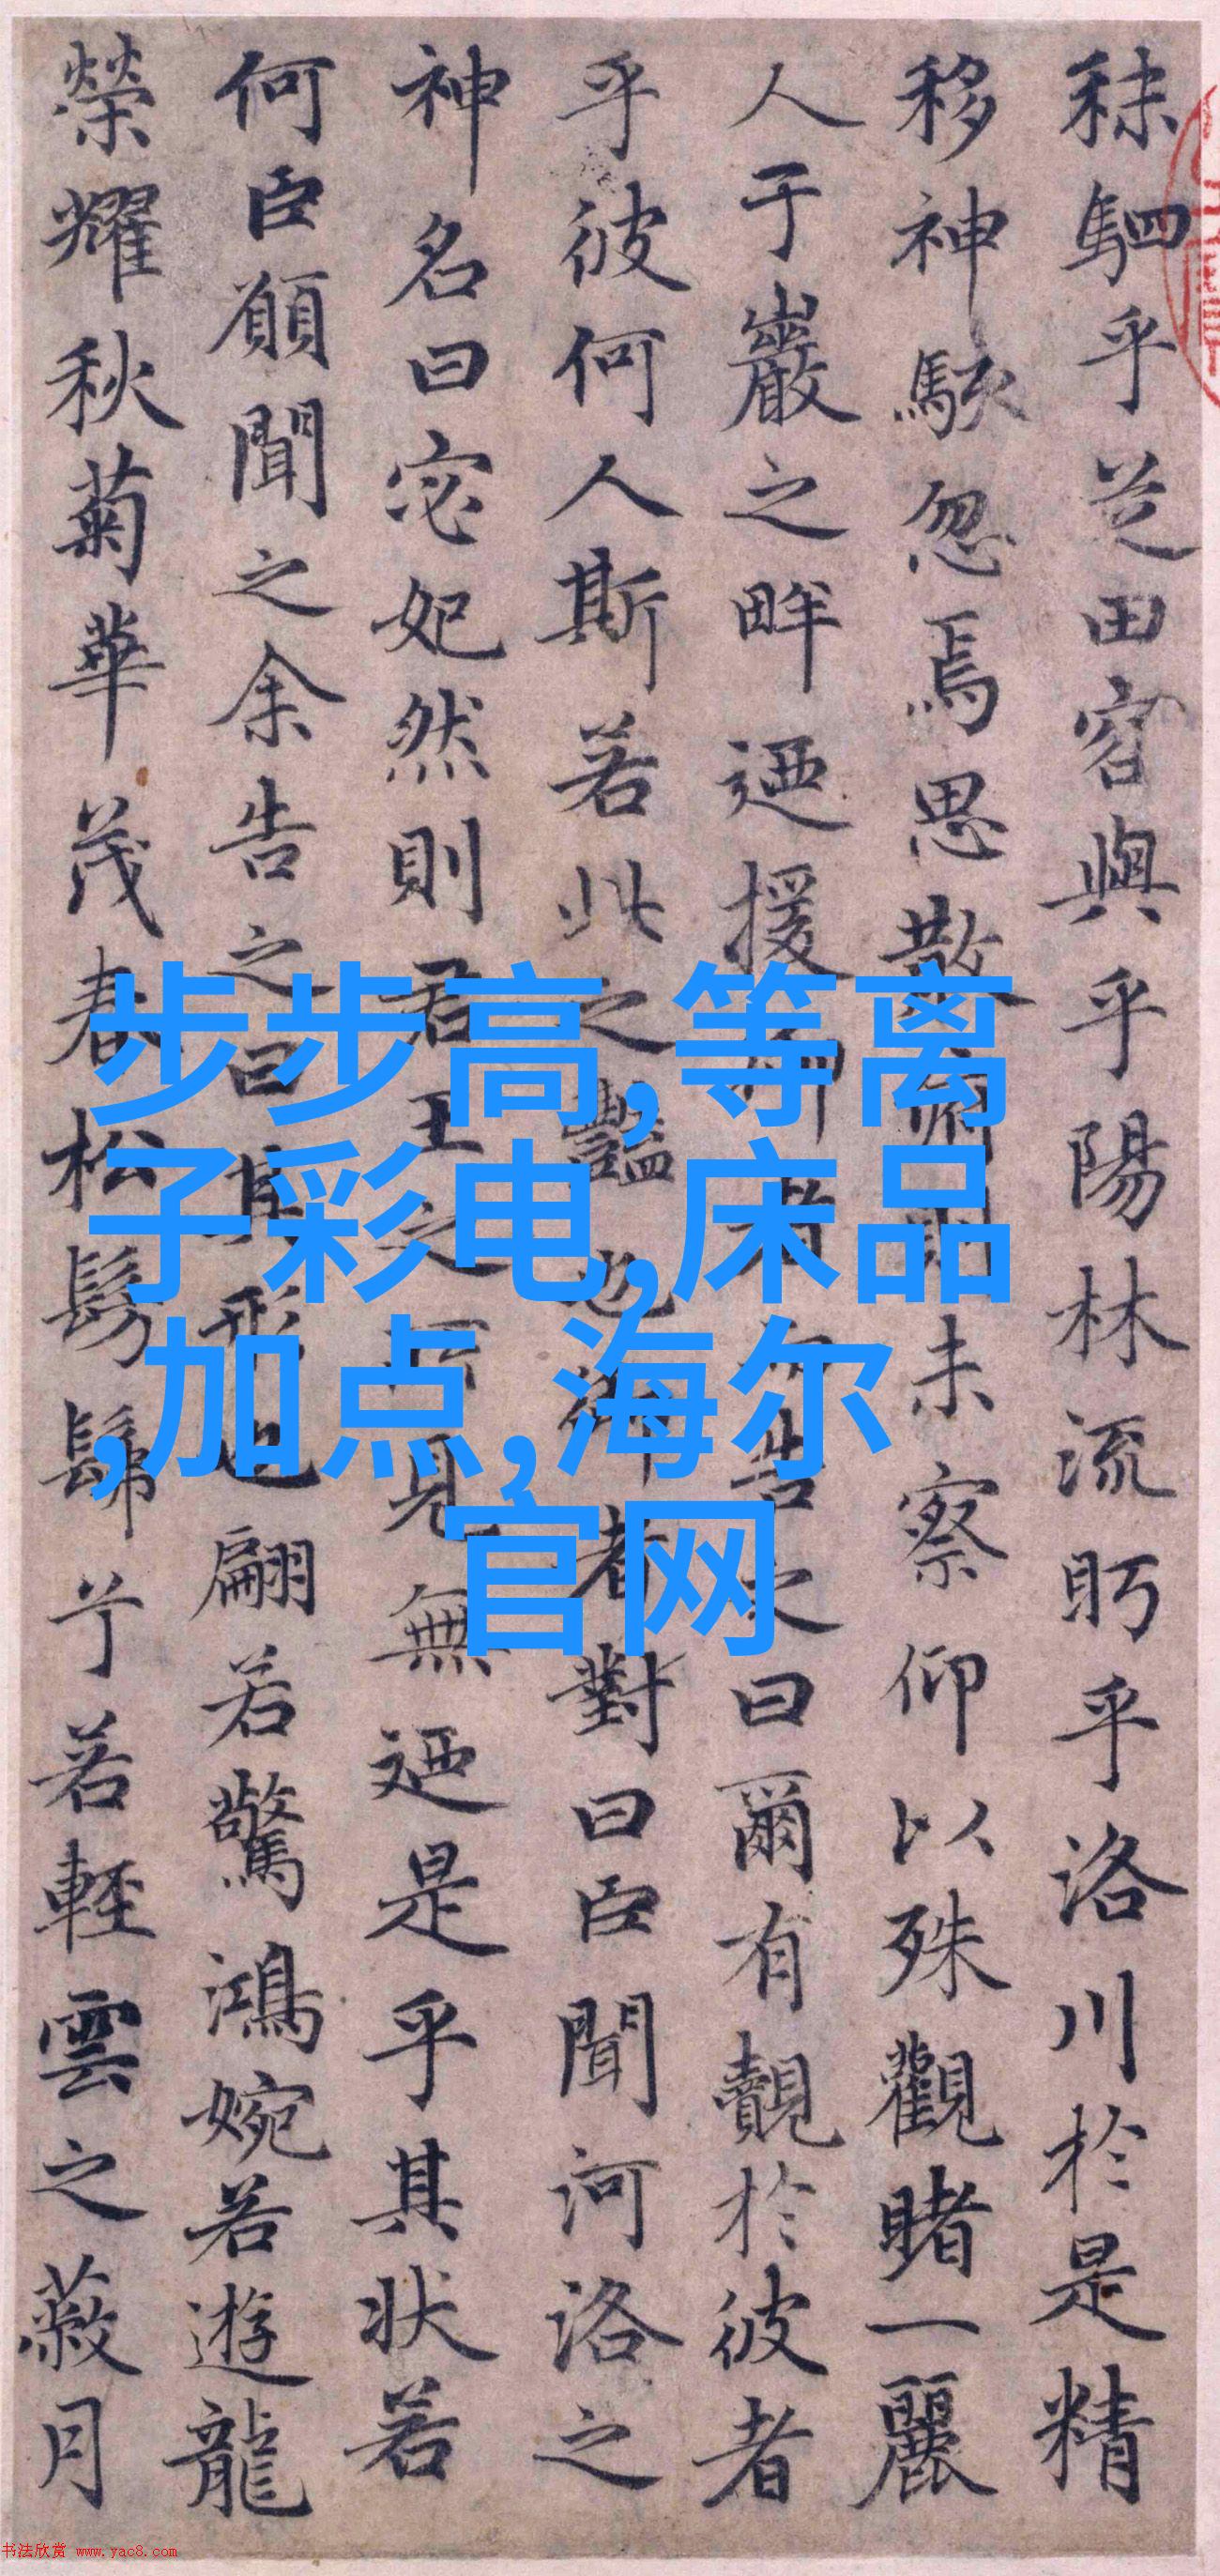 秣駟乎芝田容與乎陽林流眄乎洛川於是精
移神駭忽焉思散俯則未察仰以殊觀睹一麗
人于巖之畔迺援御者而告之曰爾有覿於彼者
乎彼何人斯若此之豔也御者對曰臣聞河洛之
神名曰宓妃然則君王之所見無迺是乎其狀若
何臣願聞之余告之曰其形也翩若驚鴻婉若遊龍
榮耀秋菊華茂春松髣髴兮若輕雲之蔽月
步步高,等离
子彩电,床品
,加点,海尔
官网
书法欣赏 www.yac8.com